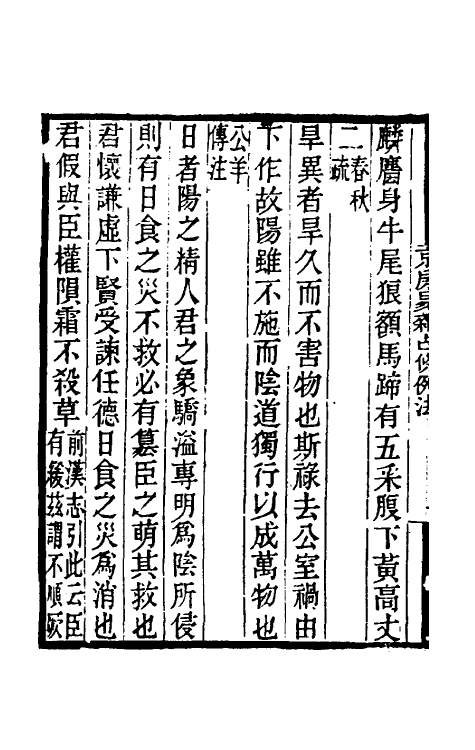 麟麕身牛尾狼額馬蹄有五采腹下黃高丈
二春秋疏
旱異者旱久而不害物也斯祿去公室禍由
下作故陽雖不施而陰道獨行以成萬物也
公羊傳注
日者陽之精人君之象驕溢專明為陰所侵
則有日食之災不救必有篡臣之萌其救也
君懷謙虛下賢受諫任德日食之災為消也
君假與臣權隕霜不殺草前漢志引此云臣有緩茲謂不順厥
京房易雜占條例法